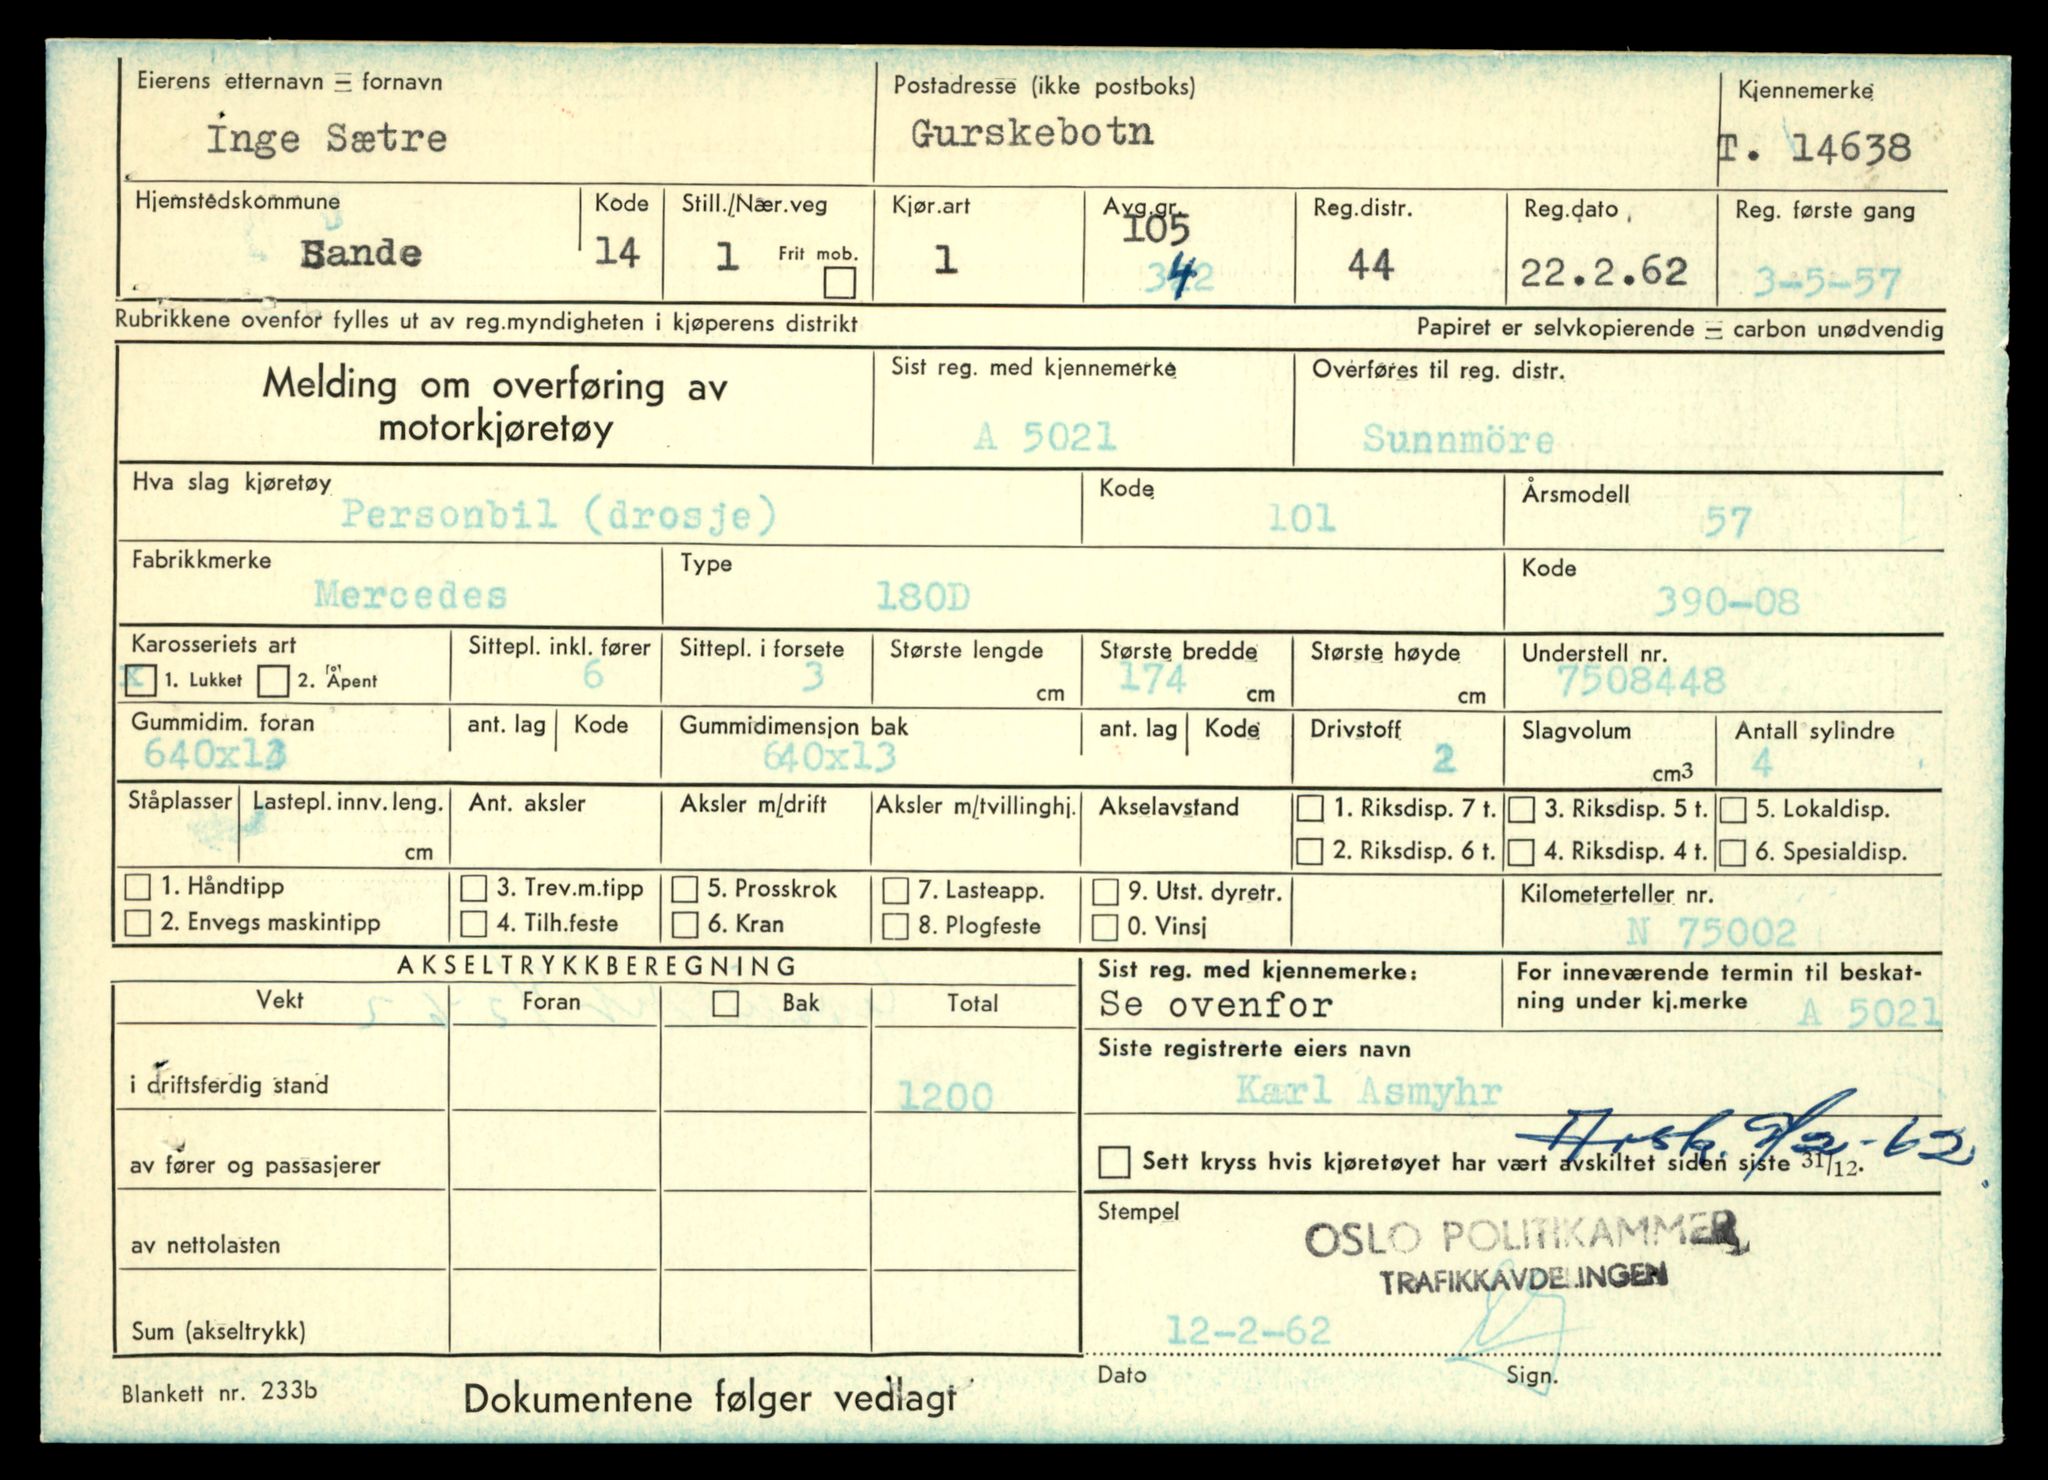 Eierens etternavn — fornavn
Inge Sætre
Postadresse (ikke postboks)
Gurskebotn
Kjennemerke
T. 14638
Hjemstedskommune
Sande
Kode
14
Still./Nær.veg
1
Frit mob.
Kjør.art
1
Avg.gr.
105
4
Reg.distr.
44
Reg.dato
22.2.62
Reg. første gang
3-5-57
Rubrikkene ovenfor fylles ut av reg.myndigheten i kjøperens distrikt
Papiret er selvkopierende — carbon unødvendig
Melding om overføring av
motorkjøretøy
Sist reg. med kjennemerke
A 5021
Overføres til reg. distr.
Sunnmöre
Hva slag kjøretøy
Personbil (drosje)
Kode
101
Årsmodell
57
Fabrikkmerke
Mercedes
Type
180D
Kode
390-08
Karosseriets art
x 1. Lukket 2. Åpent
Sittepl. inkl. fører
6
Sittepl. i forsete
3
Største lengde
cm
Største bredde
174 cm
Største høyde
cm
Understell nr.
7508448
Gummidim. foran
640x13
ant. lag
Kode
Gummidimensjon bak
640x13
ant. lag
Kode
Drivstoff
2
Slagvolum
cm3
Antall sylindre
4
Ståplasser
Lastepl. innv. leng.
cm
Ant. aksler
Aksler m/drift
Aksler m/tvillinghj.
Akselavstand
1. Riksdisp. 7 t.
3. Riksdisp. 5 t.
5. Lokaldisp.
2. Riksdisp. 6 t.
4. Riksdisp. 4 t.
6. Spesialdisp.
1. Håndtipp
3. Trev.m.tipp
5. Prosskrok
7. Lasteapp.
9. Utst. dyretr.
2. Envegs maskintipp
4. Tilh.feste
6. Kran
8. Plogfeste
0. Vinsj
Kilometerteller nr.
N 75002
AKSELTRYKKBEREGNING
Vekt
Foran
Bak
Total
i driftsferdig stand
1200
av fører og passasjerer
av nettolasten
Sum (akseltrykk)
Sist reg. med kjennemerke:
Se ovenfor
For inneværende termin til beskat-
ning under kj.merke
A 5021
Siste registrerte eiers navn
Karl Asmyhr
Avsk. 9/2-62
Sett kryss hvis kjøretøyet har vært avskiltet siden siste 31/12.
Stempel
OSLO POLITIKAMMER
TRAFIKKAVDELINGEN
12-2-62
Dato
Sign.
Blankett nr. 233b
Dokumentene følger vedlagt